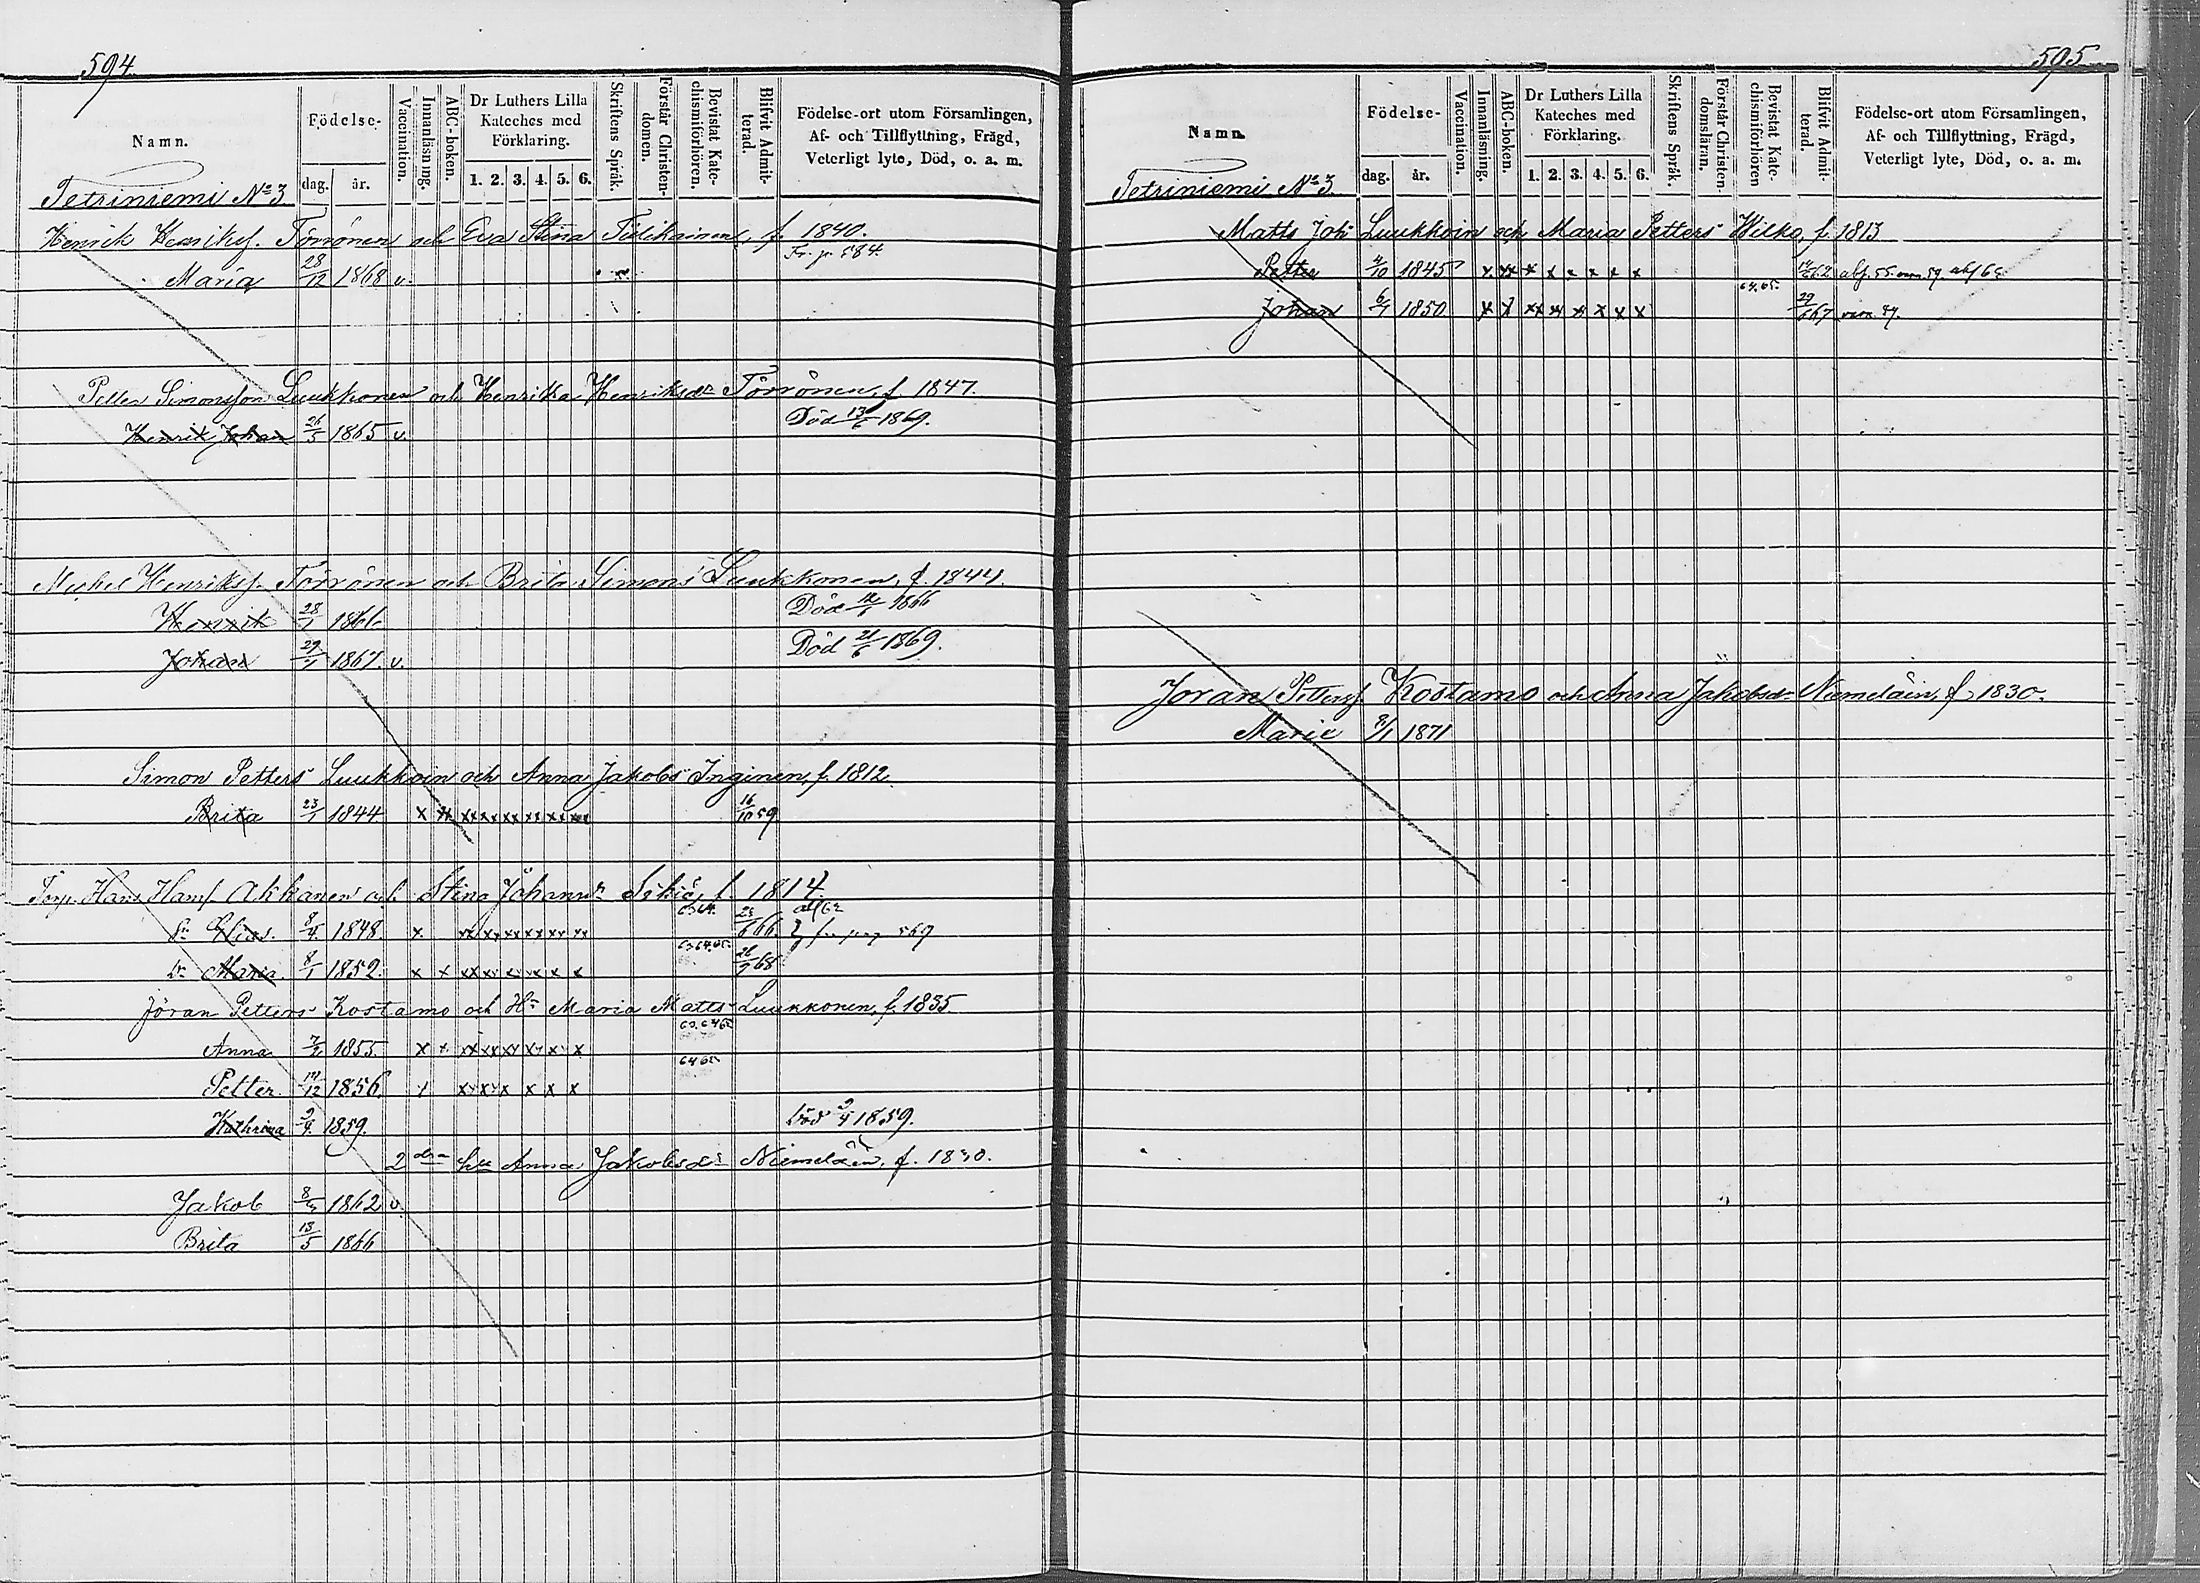 594.
Namn.
Födelse-
dag.
år.
Vaccination.
Innanläsning.
ABC-boken.
Dr Luthers Lilla Kateches med Förklaring.
1. 2. 3. 4. 5. 6.
Skriftens Språk.
Förstår Christen-domen.
Bevistat Kate-chismiförhören.
Blifvit Admit-terad.
Födelse-ort utom Församlingen, Af- och Tillflyttning, Frägd, Veterligt lyte, Död, o. a. m.
Petriniemi No 3
Henrik Henriksf. Törrönen och Eva Stina Tulikainen, f. 1840.
Maria 28/12 1868 v. Fr. p. 584.
Petter Simonsson Luukkonen och Henrika Henriksdr Törrönen, f. 1847.
Henrik Johan 26/5 1865 v. Död 13/6 1869.
Michel Henriksf. Törrönen och Brita Simons Luukkonen, f. 1844.
Henrik 28/1 1866 Död 1866
Johan 29/1 1867. v. Död 21/6 1869.
Simon Petters Luukkoin och Anna Jakobs Inginen, f. 1812.
Brita 23/1 1844 x xx xx xx xx xx xx xx 16/10 59
Hans Hansf. Akkanen och Stina Johansdr f. 1814
8/4 1848. x xx xx xx xx xx xx 66. 569
Maria 8/1 1852. x x xx xx x x x x 68
Jöran Petters Kostamo och Hu Maria Matts Luukkonen, f. 1835.
Anna 7/2 1855. x x xx xx xx x x x 63. 64 65
Petter 14/12 1856. x x x x x x 64 65
Kathrina 2/4 1859. Död 9/4 1859.
2dra hu Anna Jakobsdr Niemeläin, f. 1830.
Jakob 1862 v.
Brita 13/5 1866
595
Namn.
Födelse-
dag.
år.
Vaccination.
Innanläsning.
ABC-boken.
Dr Luthers Lilla Kateches med Förklaring.
1. 2. 3. 4. 5. 6.
Skriftens Språk.
Förstår Christen-domsläran.
Bevistat Kate-chismiförhören
Blifvit Admit-terad
Födelse-ort utom Församlingen, Af- och Tillflyttning, Frägd, Veterligt lyte, Död, o. a. m.
Petriniemi No 3.
Matts Joh: Luukkoin och Maria Petters Wilko, f. 1813
Petter 4/10 1845 x. xx x x x x x x 62
Johan 1850 x x xx xx x x x x 64. 65. 29/6 67
Joran Pettersf. Kostamo och Anna Jakobsdr Niemeläin, f. 1830.
Maria 8/1 1871